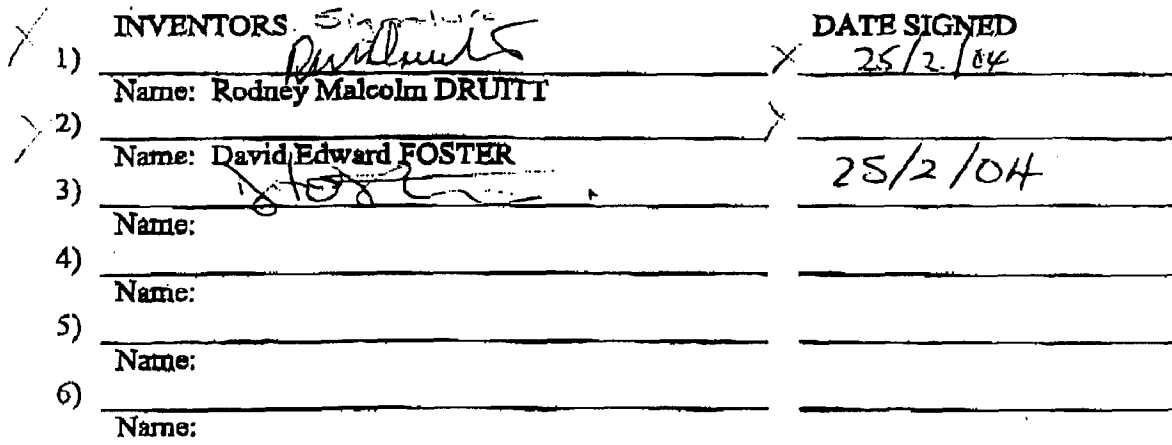 INVENTORS Signature DATE SIGNED
1) 25/2/04
Name: Rodney Malcolm DRUITT
2)
Name: David Edward FOSTER
3) 25/2/04
Name:
4)
Name:
5)
Name:
6)
Name: